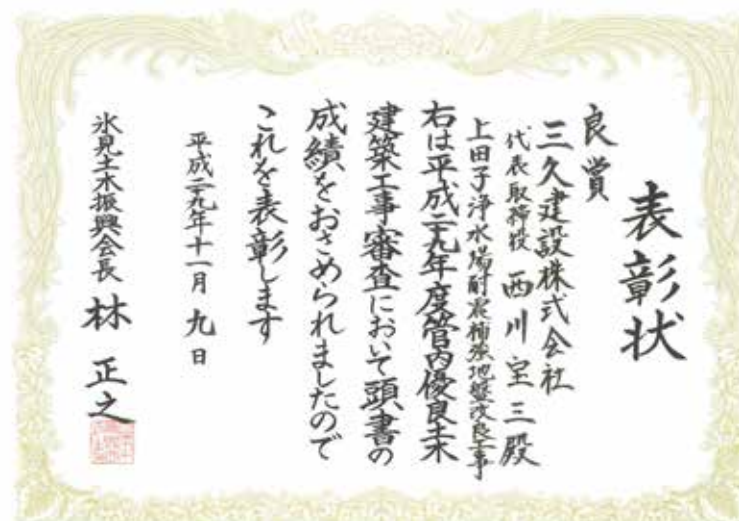 表彰状
良賞
三久建設株式会社
代表取締役 西川宝三殿
上田子浄水場耐震補強地盤改良工事
右は平成二九年度管内優良土木
建築工事審査において頭書の
成績をおさめられましたので
これを表彰します
平成二九年十一月九日
氷見土木振興会長 林正之